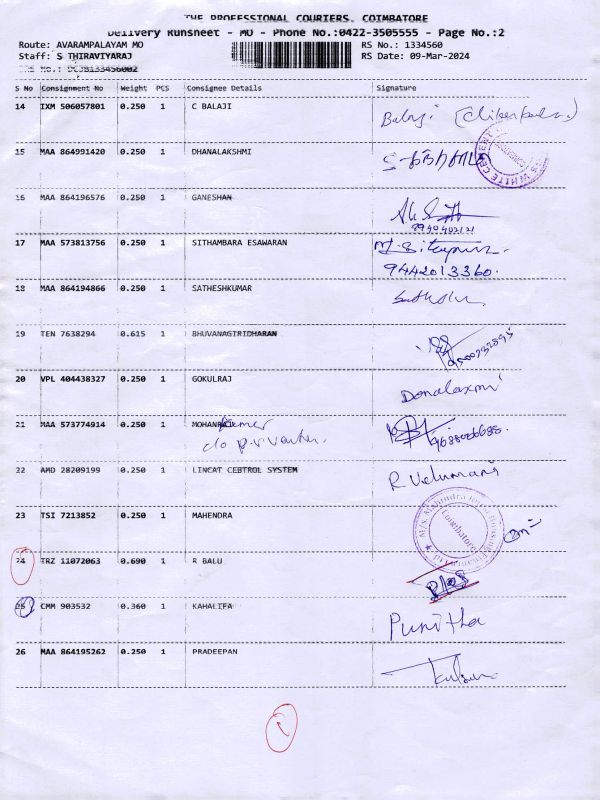 THE PROFESSIONAL COURIERS, COIMBATORE
Delivery Runsheet - MO - Phone No.:0422-3505555 - Page No.:2
Route: AVARAMPALAYAM MO
RS No.: 1334560
Staff: S THIRAVIYARAJ
RS Date: 09-Mar-2024
S No Consignment No Weight PCS Consignee Details Signature
14 IXM 506057801 0.250 1 C BALAJI
15 MAA 864991420 0.250 1 DHANALAKSHMI
16 MAA 864196576 0.250 1 GANESHAN
17 MAA 573813756 0.250 1 SITHAMBARA ESAWARAN
9442013360.
18 MAA 864194866 0.250 1 SATHESHKUMAR
19 TEN 7638294 0.615 1 BHUVANAGIRIDHARAN
20 VPL 404438327 0.250 1 GOKULRAJ Donalaxmi
21 MAA 573774914 0.250 1
c/o
22 AMD 28209199 0.250 1 LINCAT CEBTROL SYSTEM R Velumani
23 TSI 7213852 0.250 1 MAHENDRA
Coimbatore
24 TRZ 11072063 0.690 1 R BALU
25 CMM 903532 0.360 1 KAHALIFA Punitha
26 MAA 864195262 0.250 1 PRADEEPAN